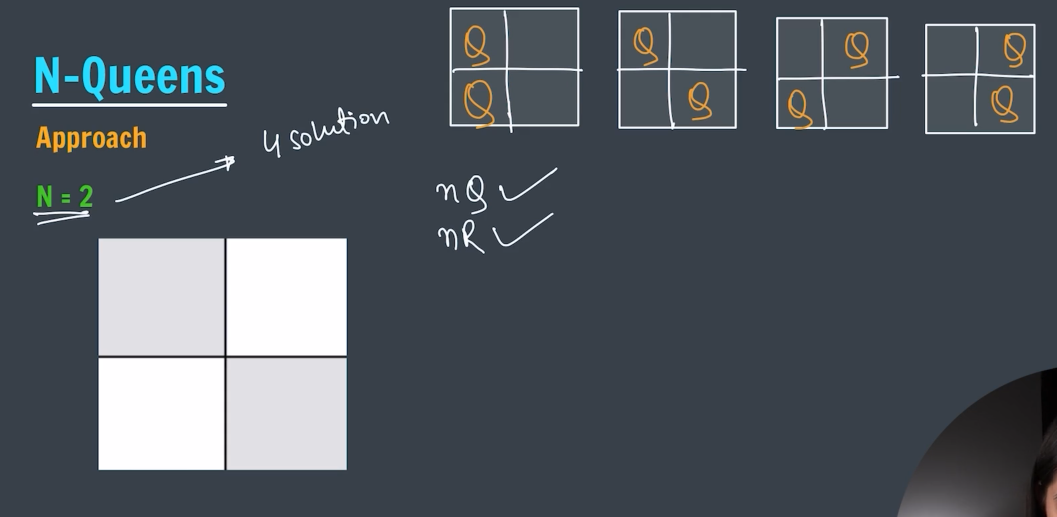 N-Queens
Approach
N = 2
4 solution
Q
Q
Q
Q
Q
Q
Q
Q
nQ
nR